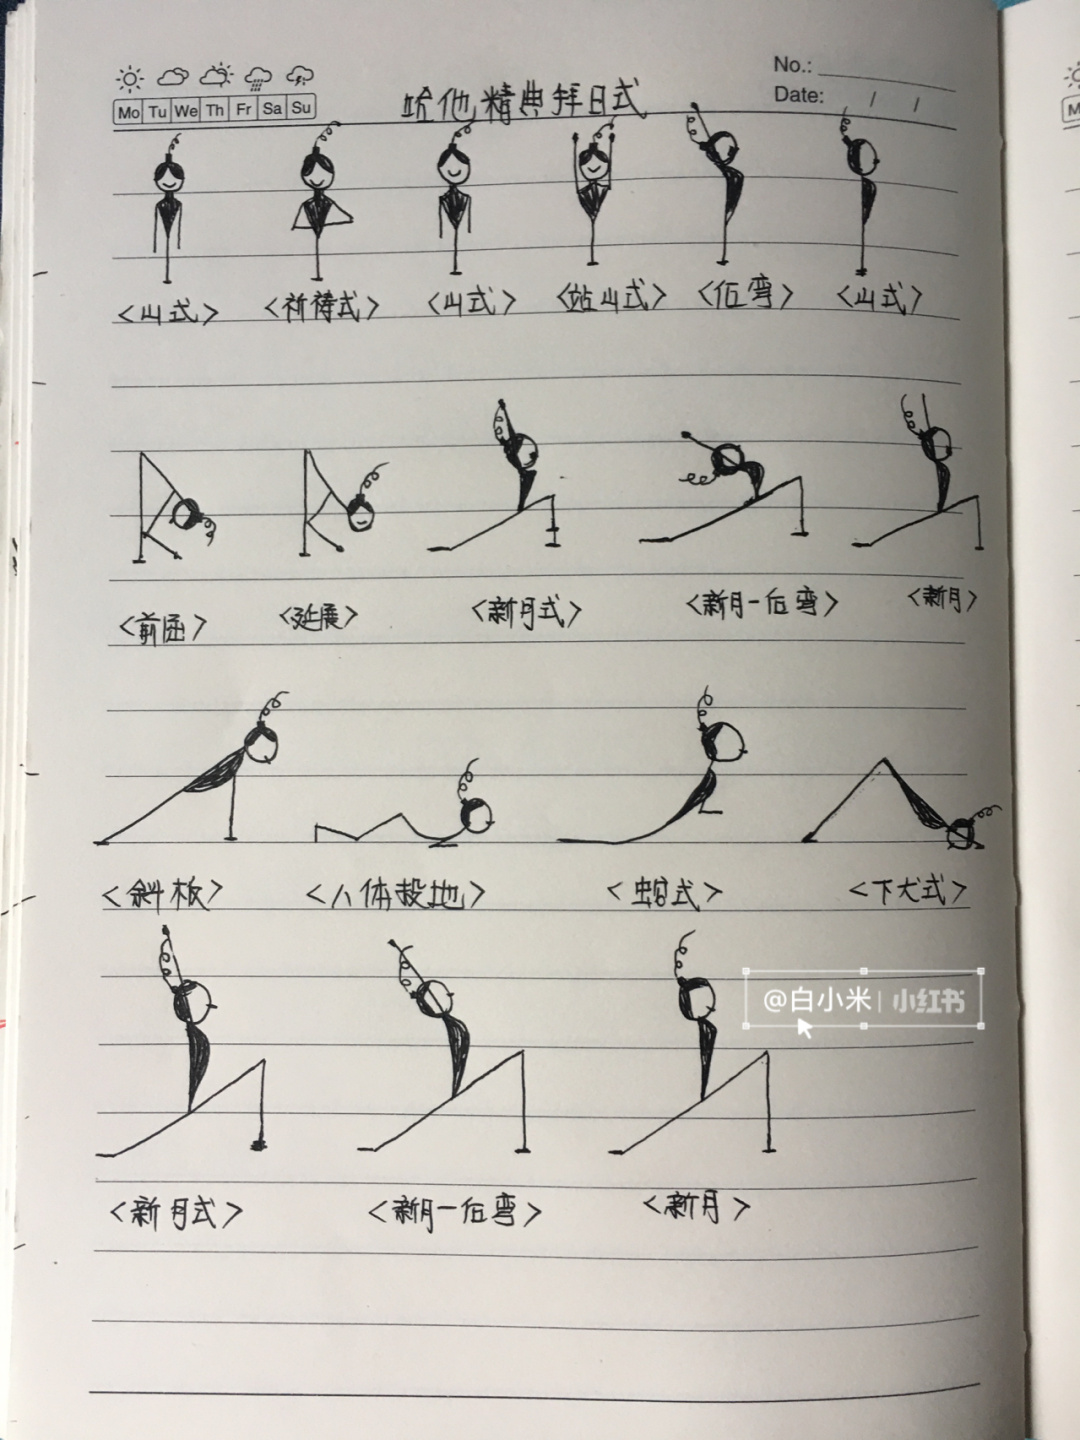 No.:
Date: / /
Mo Tu We Th Fr Sa Su
哈他精典拜日式
<山式> <祈祷式> <山式> <站山式> <后弯> <山式>
<前屈> <延展> <新月式> <新月-后弯> <新月>
<斜板> <八体投地> <下犬式>
@白小米 | 小红书
<新月式> <新月-后弯> <新月>